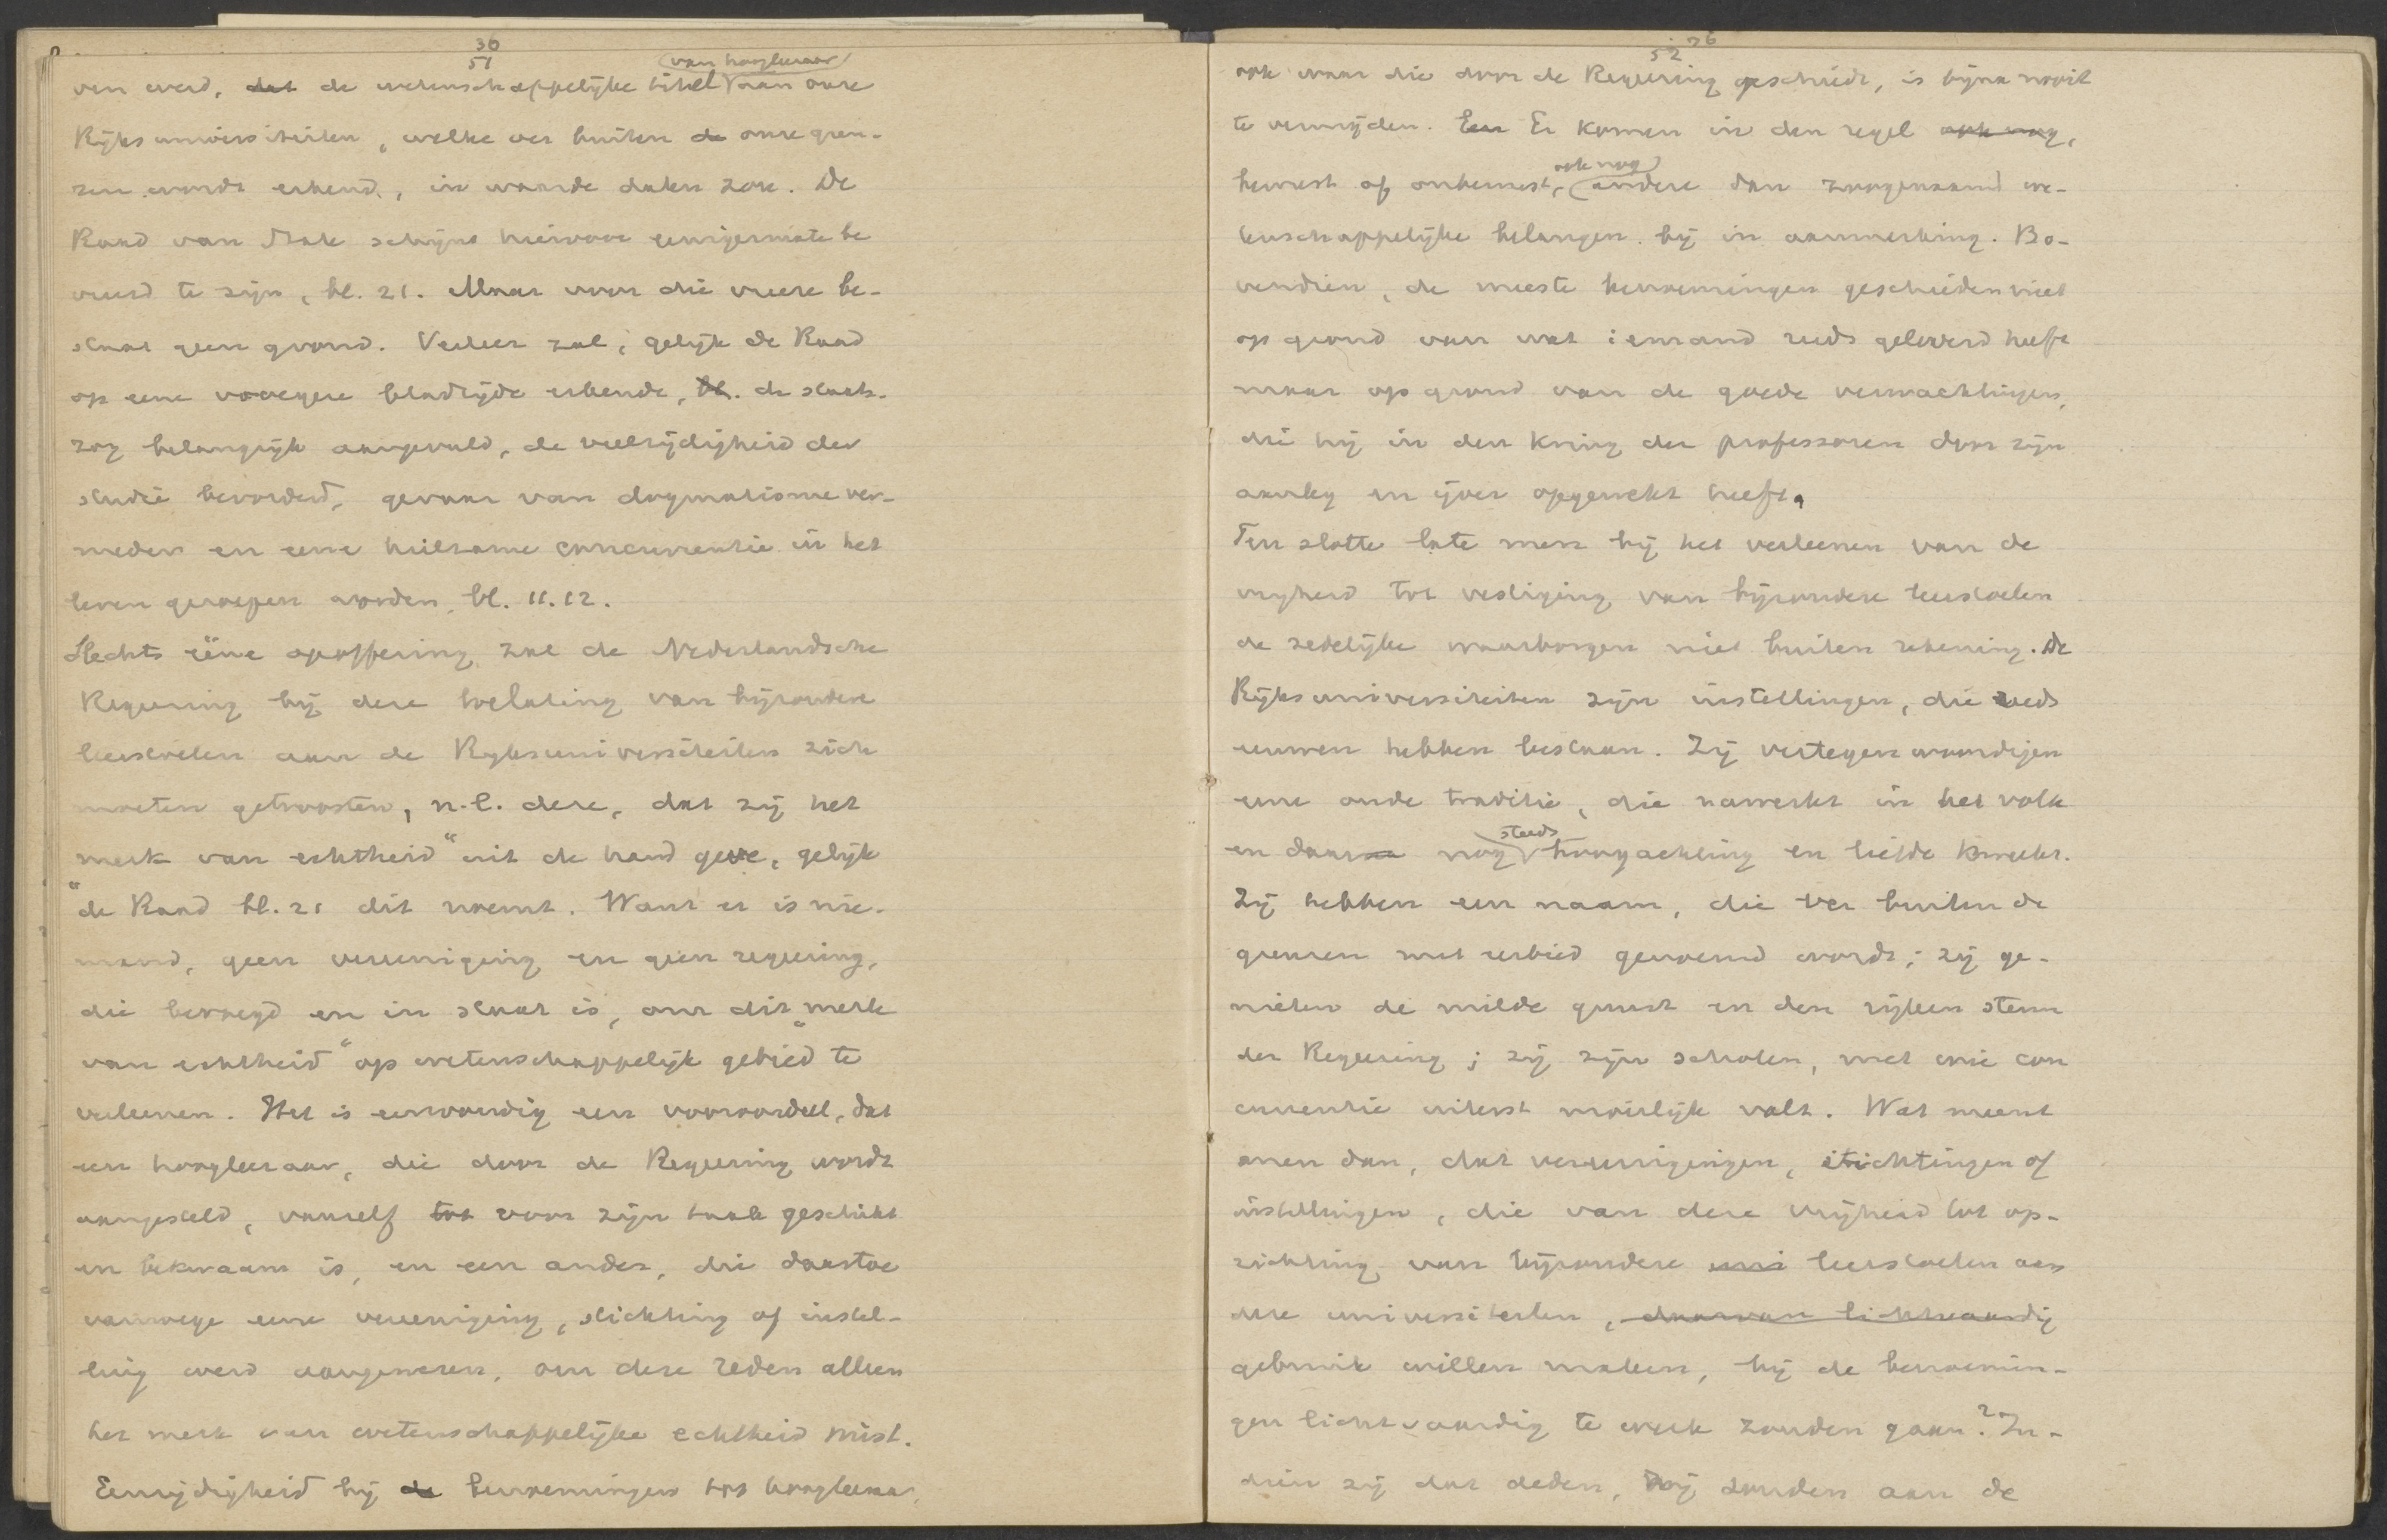 36
51
van hoogleeraar
ven werd, dat de wetenschappelijke titel aan onze
Rijksuniversiteiten, welke ver buiten de onze gren-
zen wordt erkend, in waarde dalen zou. De
Raad van State schijnt hiervoor eenigermate be
vreesd te zijn, bl. 21. Maar voor die vreeze be-
staat geen grond. Veeleer zal, gelijk de Raad
op eene vroegere bladzijde erkende, bl. de staats-
zorg belangrijk aangevuld, de veelzijdigheid der
studie bevorderd, gevaar van dogmatisme ver-
meden en eene heilzame concurrentie in het
leven geroepen worden, bl. 11.12.
Slechts ééne opoffering zal de Nederlandsche
Regeering bij deze toelating van bijzondere
leerstoelen aan de Rijksuniversiteiten zich
moeten getroosten, n.l. deze, dat zij het
merk van echtheid" uit de hand geve, gelijk
"de Raad bl. 21 dit noemt. Want er is nie-
mand, geen vereeniging en geen regeering,
die bevoegd en in staat is, om dit "merk
van echtheid" op wetenschappelijk gebied te
verleenen. Het is eenvoudig een vooroordeel, dat
een hoogleeraar, die door de Regeering wordt
aangesteld, vanzelf tot voor zijn taak geschikt
en bekwaam is, en een ander, die daartoe
vanwege eene vereeniging, stichting of instel-
ling werd aangewezen, om deze reden alleen
het merk van wetenschappelijke echtheid mist.
Eenzijdigheid bij de benoemingen tot hoogleeraar,
36
52
ook waar die door de Regeering geschiedt, is bijna nooit
te vermijden. Een Er komen in den regel ook nog,
ook nog
bewust of onbewust, andere dan zoogenaamd we-
tenschappelijke belangen bij in aanmerking. Bo-
vendien, de meeste benoemingen geschieden niet
op grond van wat iemand reeds geleverd heeft
maar op grond van de goede verwachtingen,
die hij in den kring der professoren door zijn
aanleg en ijver opgewekt heeft.
Ten slotte late men bij het verleenen van de
vrijheid tot vestiging van bijzondere leerstoelen
de zedelijke waarborgen niet buiten rekening. De
Rijksuniversiteiten zijn instellingen, die reeds
eeuwen hebben bestaan. Zij vertegenwoordigen
eene oude traditie, die nawerkt in het volk
steeds
en daar nog hoogachting en liefde kweekt.
Zij hebben een naam, die ver buiten de
grenzen met eerbied genoemd wordt; zij ge-
nieten de milde gunst en den rijken steun
der Regeering; zij zijn scholen, met wie con
currentie uiterst moeilijk valt. Wat meent
men dan, dat vereenigingen, stichtingen of
instellingen, die van deze vrijheid tot op-
richting van bijzondere uni leerstoelen aan
deze universiteiten, daarvan lichtvaardig
gebruik willen maken, bij de benoemin-
gen lichtvaardig te werk zouden gaan? In-
dien zij dat deden, zij zouden aan de